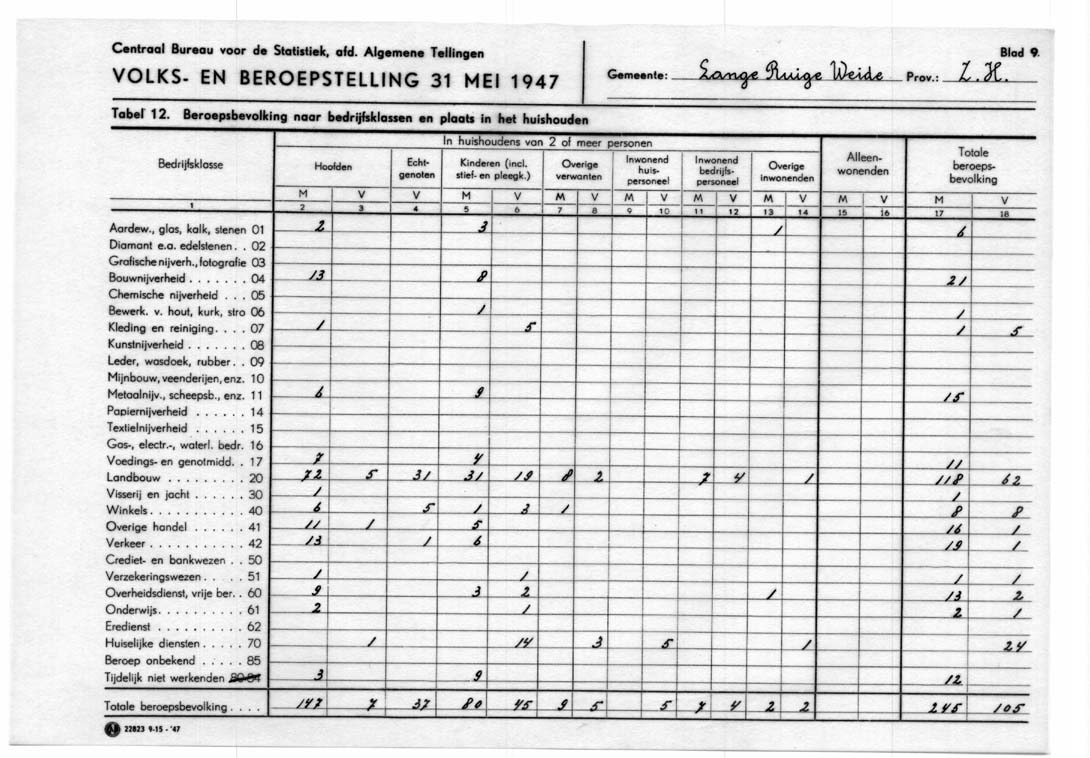 Centraal Bureau voor de Statistiek, afd. Algemene Tellingen
Blad 9.
VOLKS- EN BEROEPSTELLING 31 MEI 1947
Gemeente: Lange Ruige Weide Prov.: Z.H.
Tabel 12. Beroepsbevolking naar bedrijfsklassen en plaats in het huishouden
In huishoudens van 2 of meer personen
Bedrijfsklasse
Hoofden
Echt-
genoten
Kinderen (incl.
stief- en pleegk.)
Overige
verwanten
Inwonend
huis-
personeel
Inwonend
bedrijfs-
personeel
Overige
inwonenden
Alleen-
wonenden
Totale
beroeps-
bevolking
M V V M V M V M V M V M V M V M V
1 2 3 4 5 6 7 8 9 10 11 12 13 14 15 16 17 18
Aardew., glas, kalk, stenen 01 2 3 1 6
Diamant e.a. edelstenen. . 02
Grafische nijverh., fotografie 03
Bouwnijverheid . . . . . . . 04 13 8 21
Chemische nijverheid . . . 05
Bewerk. v. hout, kurk, stro 06 1 1
Kleding en reiniging. . . . 07 1 5 1 5
Kunstnijverheid . . . . . . . 08
Leder, wasdoek, rubber. . 09
Mijnbouw, veenderijen, enz. 10
Metaalnijv., scheepsb., enz. 11 6 9 15
Papiernijverheid . . . . . . 14
Textielnijverheid . . . . . . 15
Gas-, electr.-, waterl. bedr. 16
Voedings- en genotmidd. . 17 7 4 11
Landbouw . . . . . . . . . 20 72 5 31 31 19 8 2 7 4 1 118 62
Visserij en jacht . . . . . . 30 1 1
Winkels. . . . . . . . . . . 40 6 5 1 3 1 8 8
Overige handel . . . . . . 41 11 1 5 16 1
Verkeer . . . . . . . . . . . 42 13 1 6 19 1
Crediet- en bankwezen . . 50
Verzekeringswezen . . . . 51 1 1 1 1
Overheidsdienst, vrije ber. . 60 9 3 2 1 13 2
Onderwijs. . . . . . . . . . 61 2 1 2 1
Eredienst . . . . . . . . . . 62
Huiselijke diensten . . . . . 70 1 14 3 5 1 24
Beroep onbekend . . . . . 85
Tijdelijk niet werkenden 80-84 3 9 12
Totale beroepsbevolking . . . . 147 7 37 80 45 9 5 5 7 4 2 2 245 105
22823 9-15 - '47